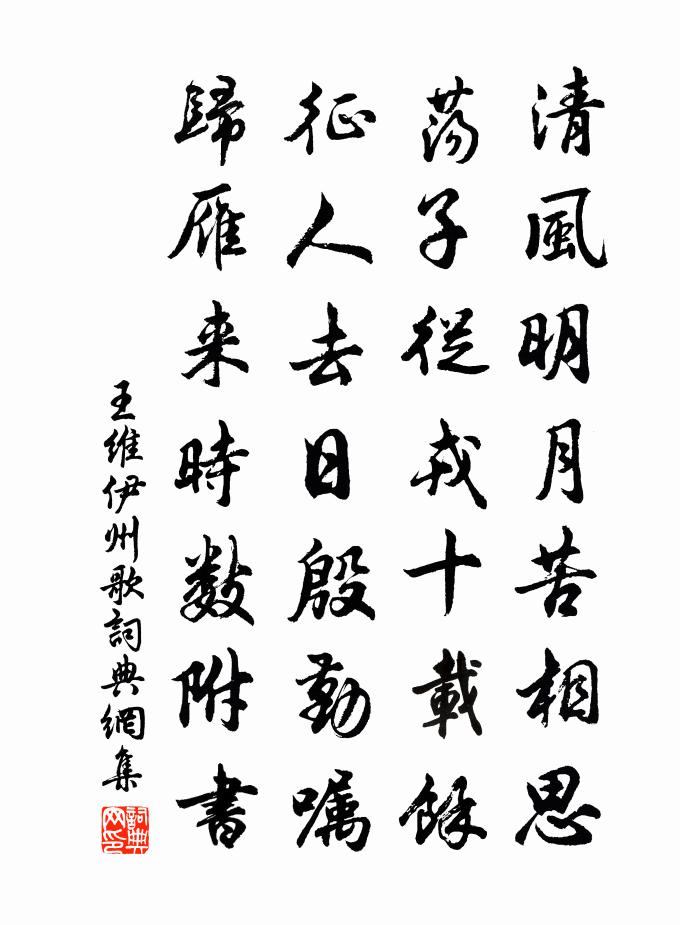 清風明月苦相思
蕩子從戎十載餘
征人去日殷勤嘱
歸雁来時數附書
王維伊州歌詞典網集
詞典网印